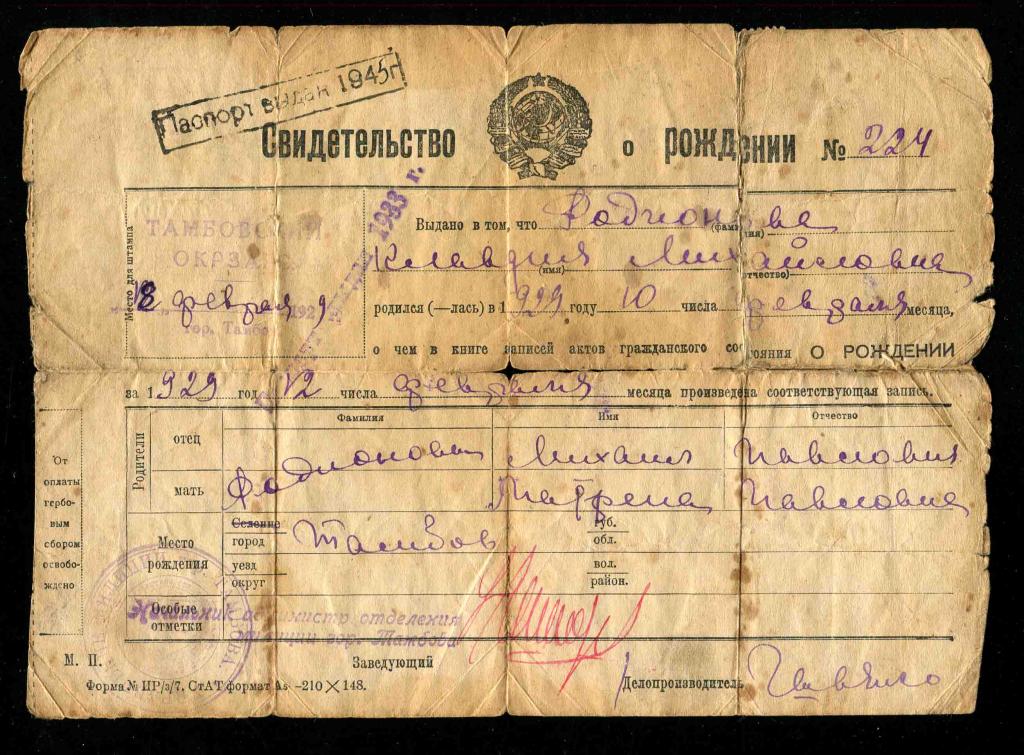 Паспорт выдан 1945г
Свидетельство о рождении № 224
Место для штампа
ТАМБОВСКИЙ
ОКРЗАГС
18 февраля 1929
гор. Тамбов
1933 г.
Выдано в том, что Родионова
(фамилия)
Клавдия Михайловна
(имя) (отчество)
родился (—лась) в 1929 году 10 числа февраля месяца,
о чем в книге записей актов гражданского состояния О РОЖДЕНИИ
за 1929 год 12 числа февраля месяца произведена соответствующая запись.
От оплаты гербовым сбором освобождено
Родители
Фамилия Имя Отчество
отец Родионовы Михаил Павлович
мать Матрена Павловна
Место рождения
Селение город Тамбов губ. обл.
уезд округ вол. район.
Особые отметки
Начальник отделения
милиции гор. Тамбова
М. П. Заведующий
Делопроизводитель
Форма № ИР/з/7, СтАТ формат А5 –210×148.